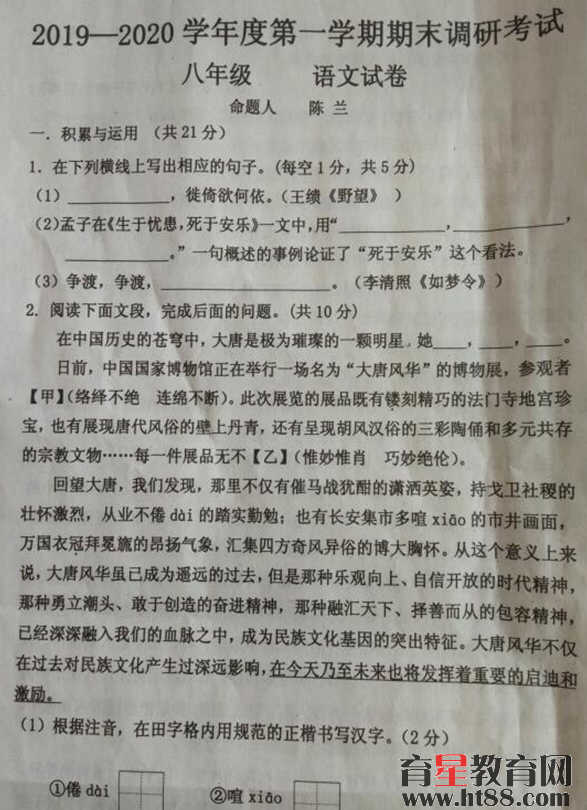 2019—2020学年度第一学期期末调研考试
八年级 语文试卷
命题人 陈 兰
一. 积累与运用 （共21分）
1. 在下列横线上写出相应的句子。(每空1分，共5分)
（1）__________，徙倚欲何依。（王绩《野望》 ）
(2)孟子在《生于忧患,死于安乐》一文中,用“__________,__________,
__________。”一句概述的事例论证了“死于安乐”这个看法。
（3）争渡，争渡，__________。（李清照《如梦令》）
2. 阅读下面文段，完成后面的问题。(共10分)
在中国历史的苍穹中，大唐是极为璀璨的一颗明星。她____，____，____。
日前，中国国家博物馆正在举行一场名为“大唐风华”的博物展，参观者
【甲】(络绎不绝 连绵不断)。此次展览的展品既有镂刻精巧的法门寺地宫珍
宝，也有展现唐代风俗的壁上丹青，还有呈现胡风汉俗的三彩陶俑和多元共存
的宗教文物……每一件展品无不【乙】（惟妙惟肖 巧妙绝伦）。
回望大唐，我们发现，那里不仅有催马战犹酣的潇洒英姿，持戈卫社稷的
壮怀激烈，从业不倦dài的踏实勤勉；也有长安集市多喧xiāo的市井画面，
万国衣冠拜冕旒的昂扬气象，汇集四方奇风异俗的博大胸怀。从这个意义上来
说，大唐风华虽已成为遥远的过去，但是那种乐观向上、自信开放的时代精神，
那种勇立潮头、敢于创造的奋进精神，那种融汇天下、择善而从的包容精神，
已经深深融入我们的血脉之中，成为民族文化基因的突出特征。大唐风华不仅
在过去对民族文化产生过深远影响,在今天乃至未来也将发挥着重要的启迪和
激励。
(1)根据注音，在田字格内用规范的正楷书写汉字。(2分)
①倦dài ②喧xiāo
育星教育网
www.ht88.com